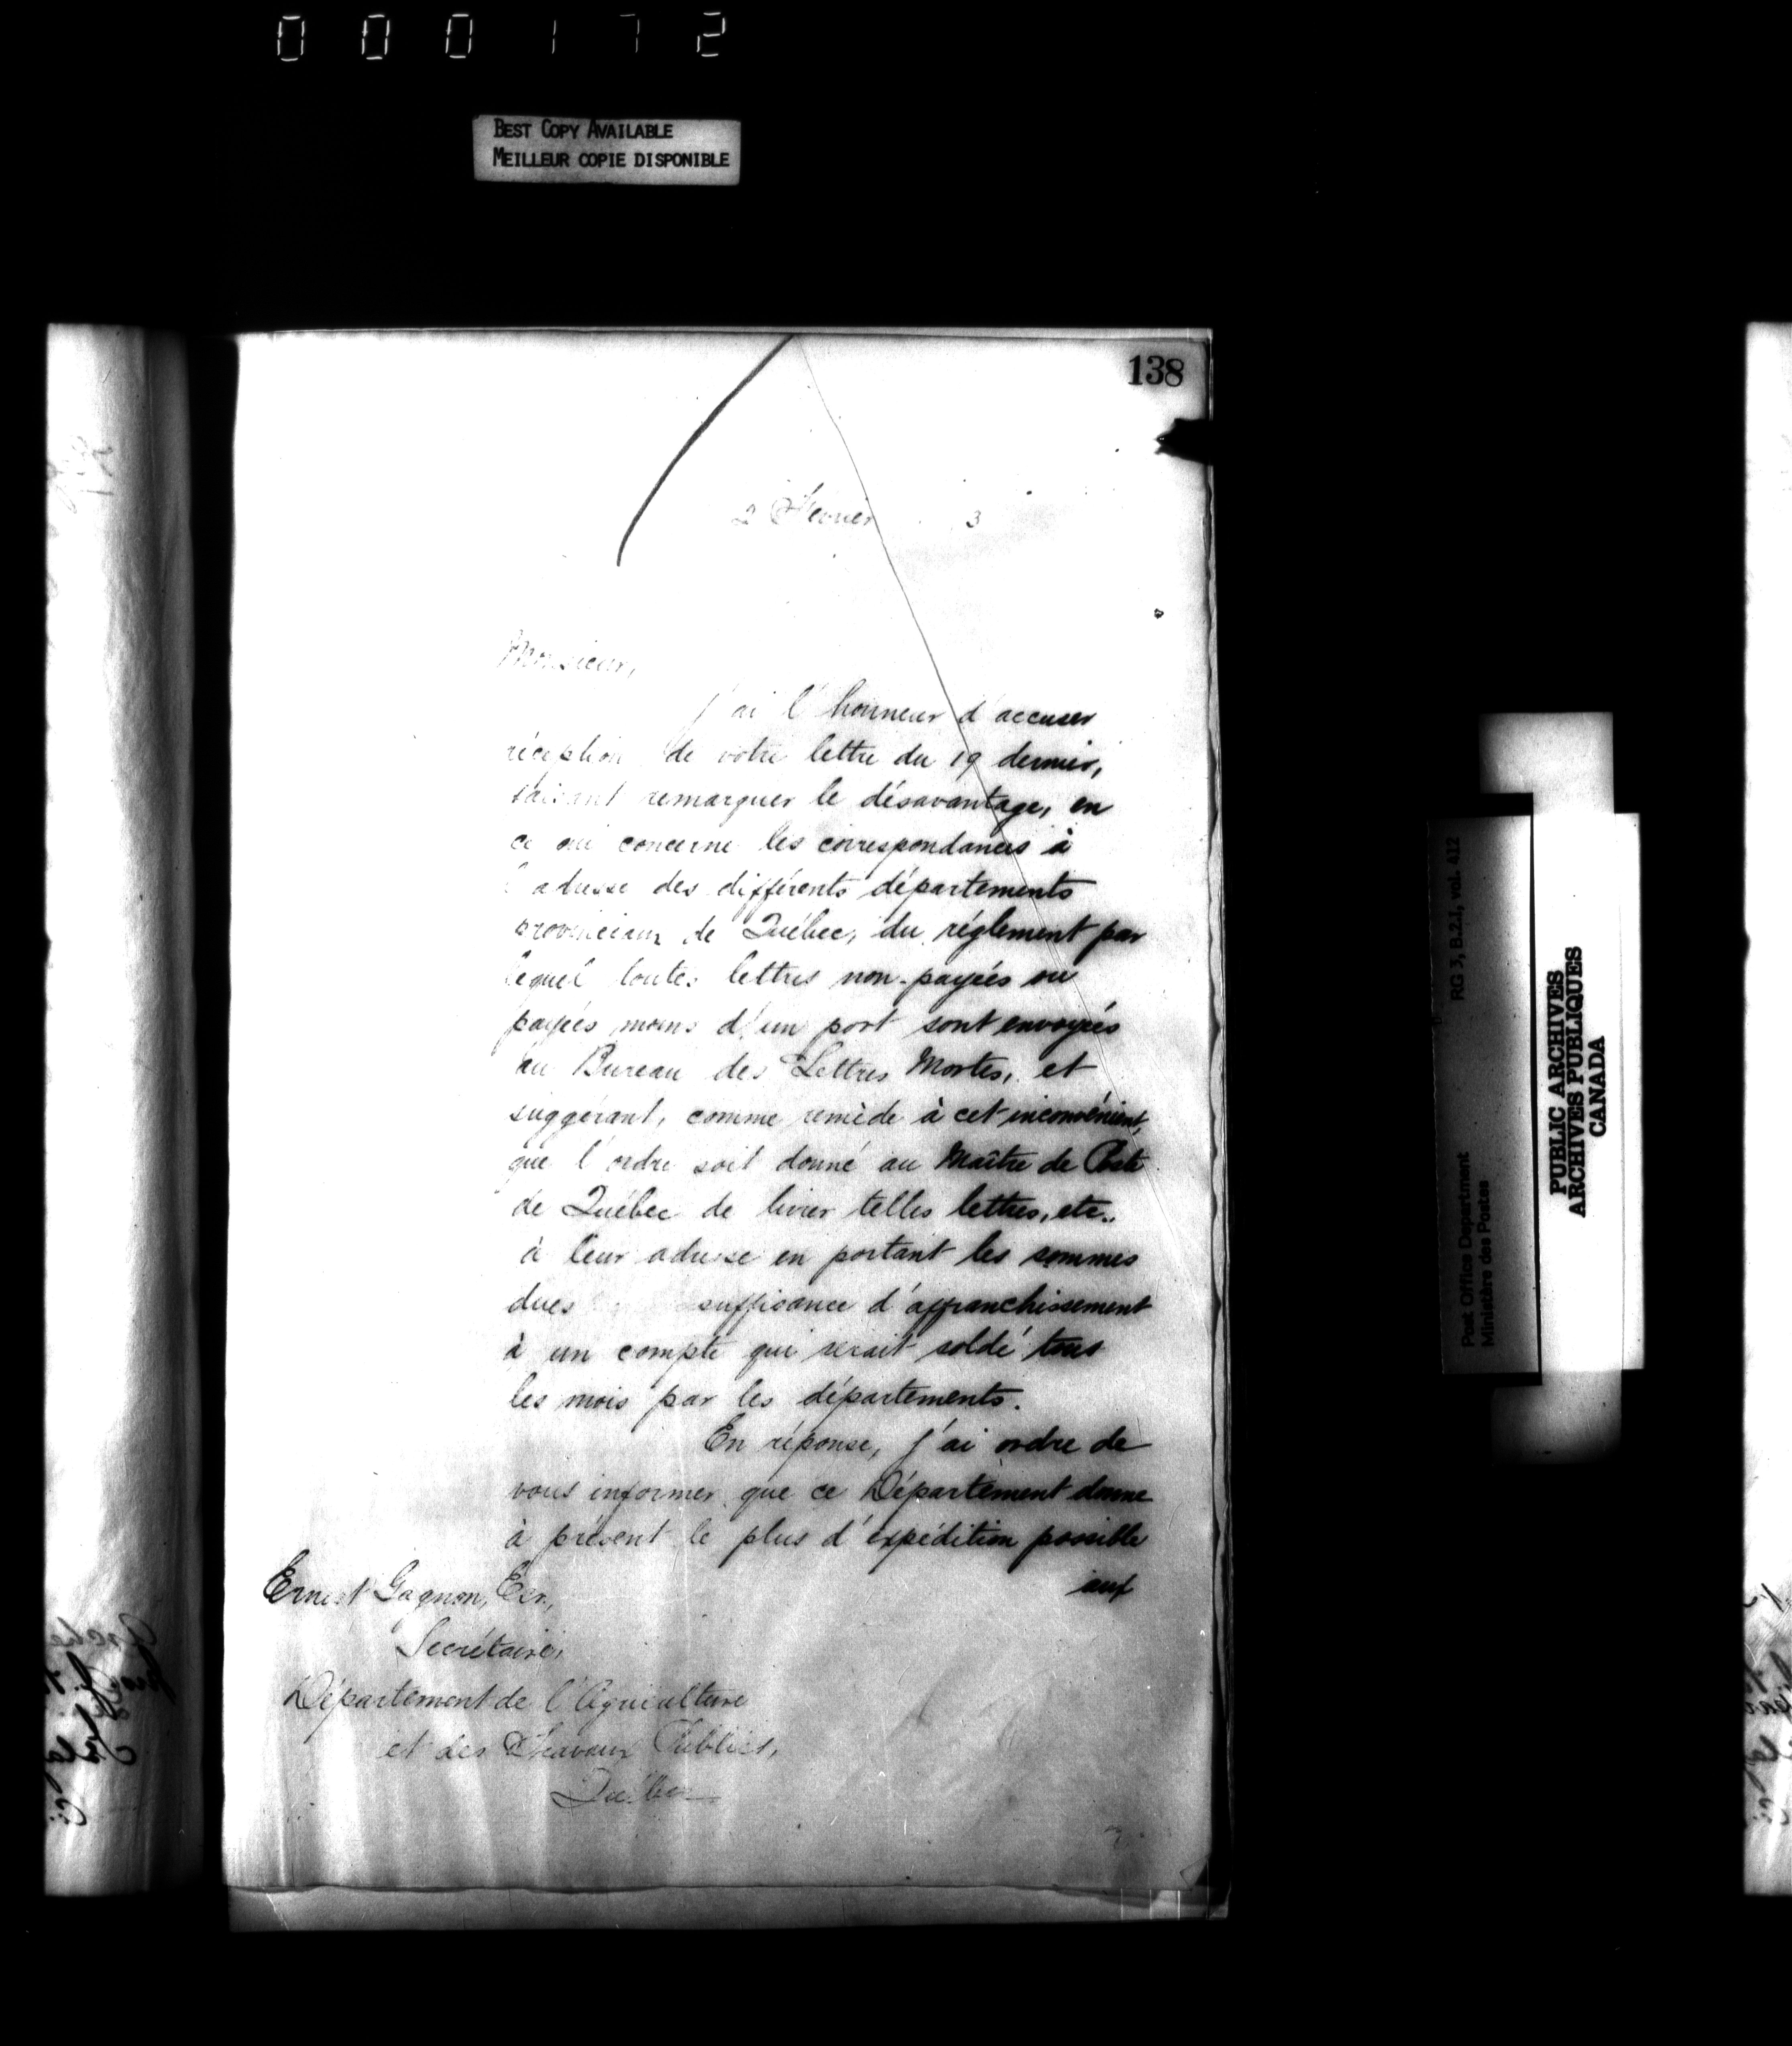 000172
BEST COPY AVAILABLE
MEILLEUR COPIE DISPONIBLE
138
2 Février 3
Monsieur,
J'ai l'honneur d'accuser
réception de votre lettre du 19 dernier,
faisant remarquer le désavantage, en
ce qui concerne les correspondances à
l'adresse des différents départements
provinciaux de Québec, du réglement par
lequel toutes lettres non-payées ou
payées moins d'un port sont envoyées
au Bureau des Lettres Mortes, et
suggérant, comme remède à cet inconvénient,
que l'ordre soit donné au Maître de Poste
de Québec de livrer telles lettres, etc.
à leur adresse en portant les sommes
dues suffisance d'affranchissement
à un compte qui serait soldé tous
les mois par les départements.
En réponse, j'ai ordre de
vous informer que ce Département donne
à présent le plus d'expédition possible
aux
Ernest Gagnon, Ecr.,
Secrétaire,
Département de l'Agriculture
et des Travaux Publics,
Québec
RG 3, B.2.I, vol. 412
Post Office Department
Ministère des Postes
PUBLIC ARCHIVES
ARCHIVES PUBLIQUES
CANADA